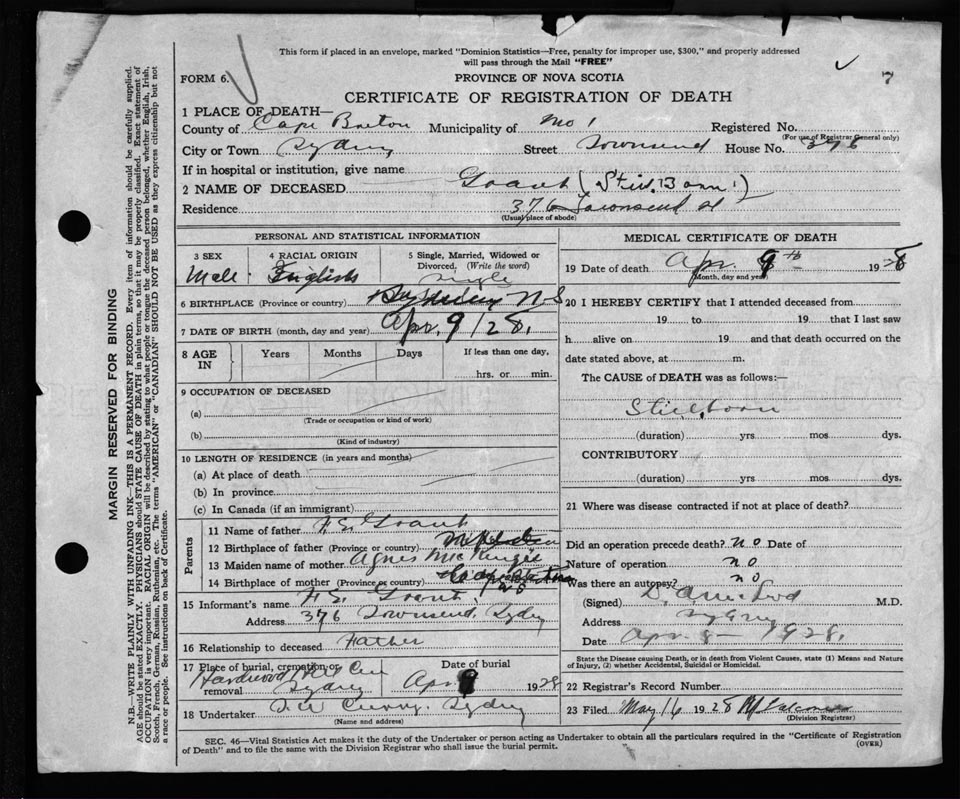 This form if placed in an envelope, marked "Dominion Statistics—Free, penalty for improper use, $300," and properly addressed
will pass through the Mail "FREE"
7
FORM 6.
PROVINCE OF NOVA SCOTIA
CERTIFICATE OF REGISTRATION OF DEATH
1 PLACE OF DEATH—
County of Cape Breton Municipality of No 1 Registered No.
(For use of Registrar General only)
City or Town Sydney Street Townsend House No. 376
If in hospital or institution, give name
2 NAME OF DECEASED Grant (Still Born)
Residence 376 Townsend St
(Usual place of abode)
PERSONAL AND STATISTICAL INFORMATION
3 SEX 4 RACIAL ORIGIN 5 Single, Married, Widowed or Divorced. (Write the word)
Male English Single
6 BIRTHPLACE (Province or country) Sydney N-S
7 DATE OF BIRTH (month, day and year) Apr. 9/28.
8 AGE IN Years Months Days If less than one day,
hrs. or min.
9 OCCUPATION OF DECEASED
(a)
(Trade or occupation or kind of work)
(b)
(Kind of industry)
10 LENGTH OF RESIDENCE (in years and months)
(a) At place of death
(b) In province
(c) In Canada (if an immigrant)
Parents
11 Name of father F. E. Grant
12 Birthplace of father (Province or country)
13 Maiden name of mother Agnes McKenzie
14 Birthplace of mother (Province or country) NS
15 Informant's name F. E. Grant
Address 376 Townsend Sydney
16 Relationship to deceased Father
17 Place of burial, cremation or removal Hardwood Hill Cem Sydney
Date of burial Apr 9 1928
18 Undertaker Curry. Sydney
(Name and address)
MEDICAL CERTIFICATE OF DEATH
19 Date of death Apr. 9th 1928
(Month, day and year)
20 I HEREBY CERTIFY that I attended deceased from
19 to 19 that I last saw
h alive on 19 and that death occurred on the
date stated above, at m.
The CAUSE of DEATH was as follows:—
Stillborn
(duration) yrs mos dys.
CONTRIBUTORY
(duration) yrs mos dys.
21 Where was disease contracted if not at place of death?
Did an operation precede death? no Date of
Nature of operation no
Was there an autopsy? no
(Signed) McLeod M.D.
Address Sydney
Date Apr 8— 1928.
State the Disease causing Death, or in death from Violent Causes, state (1) Means and Nature
of Injury, (2) whether Accidental, Suicidal or Homicidal.
22 Registrar's Record Number
23 Filed May 16 1928
(Division Registrar)
SEC. 46—Vital Statistics Act makes it the duty of the Undertaker or person acting as Undertaker to obtain all the particulars required in the "Certificate of Registration
of Death" and to file the same with the Division Registrar who shall issue the burial permit.
(OVER)
MARGIN RESERVED FOR BINDING
N.B.—WRITE PLAINLY WITH UNFADING INK—THIS IS A PERMANENT RECORD. Every item of information should be carefully supplied.
AGE should be stated EXACTLY. PHYSICIANS should STATE CAUSE OF DEATH in plain terms, so that it may be properly classified. Exact statement of
OCCUPATION is very important. RACIAL ORIGIN will be described by stating to what people or tongue the deceased person belonged, whether English, Irish,
Scotch, French, German, Russian, Ruthenian, etc. The terms "AMERICAN" or "CANADIAN" SHOULD NOT BE USED as they express citizenship but not
a race or people. See instructions on back of Certificate.